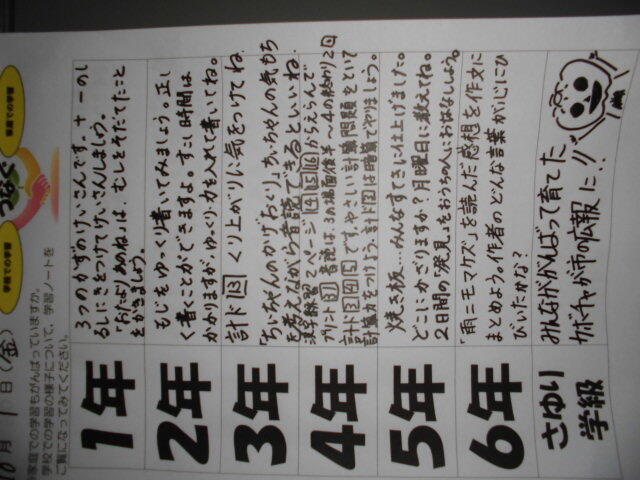 10月1日(金)
学校での学習
つなぐ
家庭での学習
家庭での学習もがんばっていますか。
学校での学習の様子について、学習ノートを
ご覧になってみてください。
1年
3つのかずのけいさんです。+-のし
るしにきをつけてけいさんしましょう。
「おはなしあのね」は、むしをそだてたこと
をかきましょう。
2年
るじをゆっくり書いてみましょう。正し
く書くことができますよ。すこし時間は
かかりますが、ゆっくり力を入れて書いてね。
3年
計ド13 くり上がりに気をつけてね
「ちいちゃんのかげおくり」ちいちゃんの気もち
を考えながら音読できるといいね。
4年
漢字練習2ページ 14 15 16 からえらんで
プリント37 音読は、3の場面後半~4の終わり2回
計ド345です。やさしい計算問題をといて
計算力をつけよう。計ド2は暗算でやりましょう。
5年
焼き板…みんなすてきに仕上げました。
どこにかざりますか?月曜日に教えてね。
2日間の「発見」をおうちの人にお話しましょう。
6年
「雨ニモマケズ」を読んだ感想を作文に
まとめよう。作者のどんな言葉が心にひ
びいたかな?
さゆり
学級
みんなががんばって育てた
カボチャが市の広報に!!